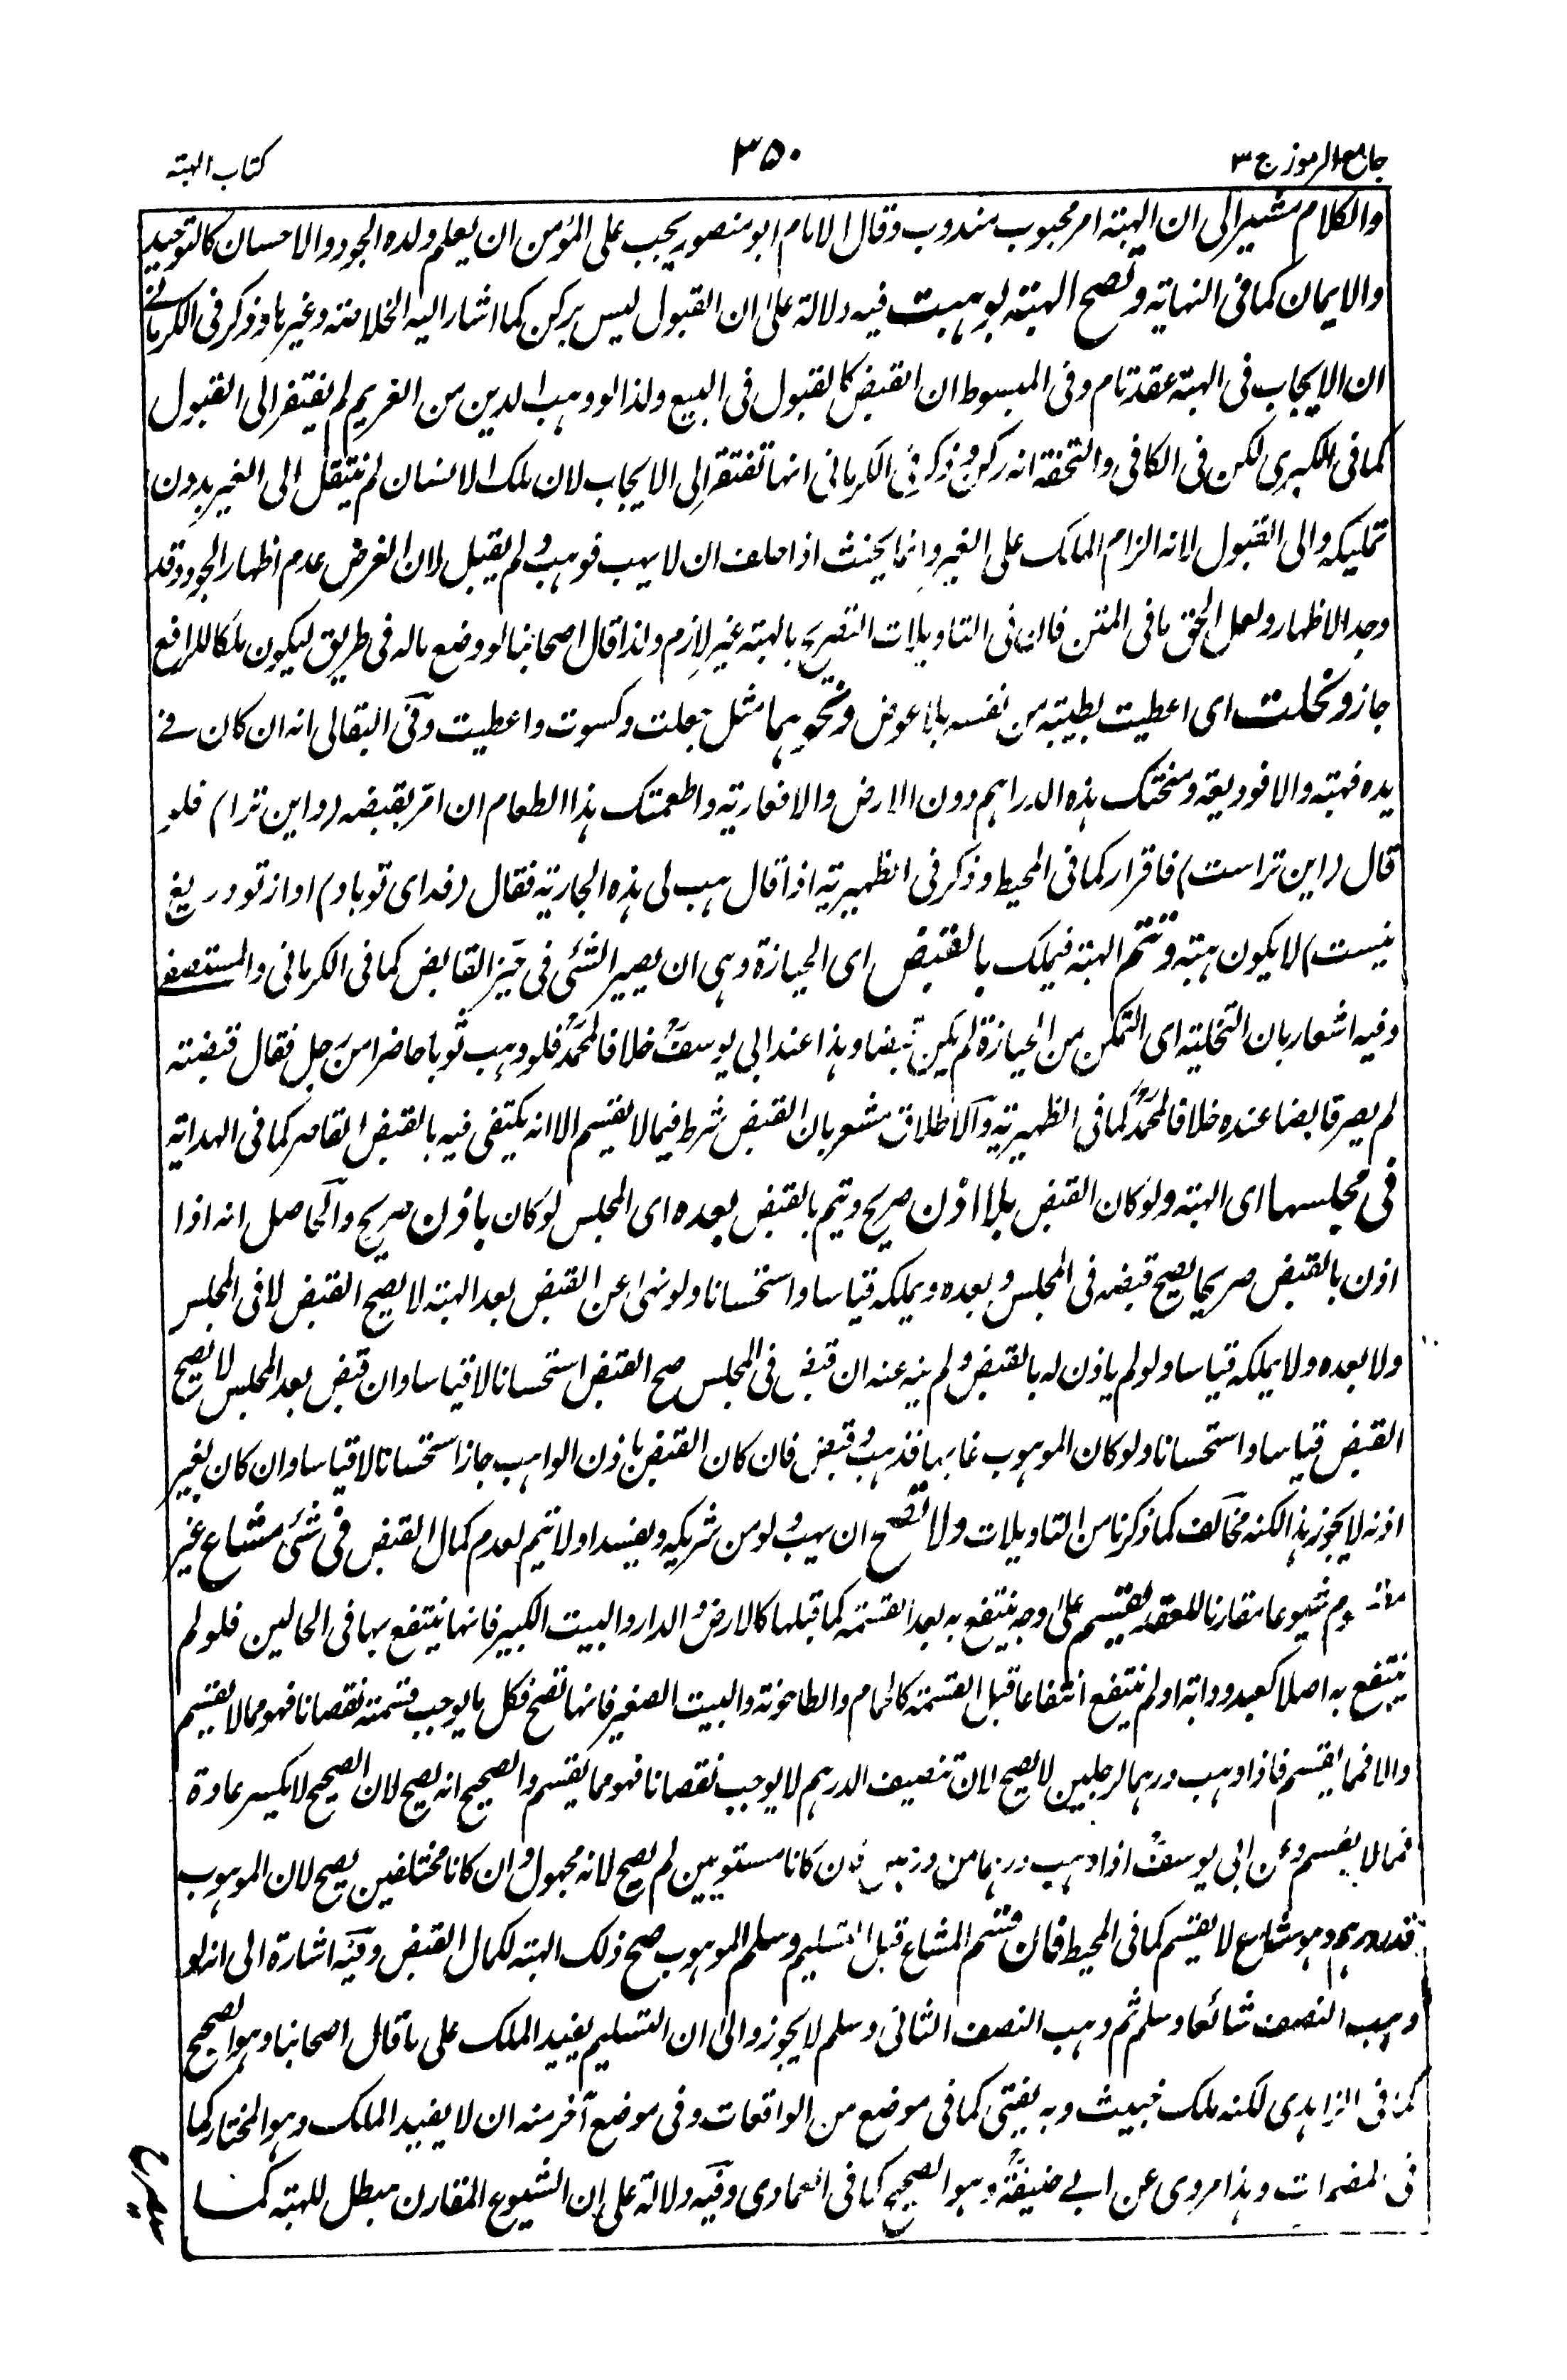 جامع الرموز ج ٣
٣٥٠
كتاب الهبة
والكلام مشير الى ان الهبة امر محبوب مندوب وقال الامام ابو منصور يجب على المؤمن ان يعلم ولده الجود والاحسان كالتوحيد
والايمان كما فى النهاية وتصح الهبة بوهبت فيه دلالة على ان القبول ليس بركن كما اشار اليه الخلاصة وغيرها وذكر فى الكرمانے
ان الايجاب فى الهبة عقد تام وفى المبسوط ان القبض كالقبول فى البيع ولذا لو وهب الدين من الغريم لم يفتقر الى القبول
كما فى الكبرى لكن فى الكافى والتحفة انه ركن وذكر فى الكرمانى انها تفتقر الى الايجاب لان ملك الانسان لم ينتقل الى الغير بدون
تمليكه والى القبول لانه الزام الملك على الغير وانما يحنث اذا حلف ان لا يهب فوهب ولم يقبل لان الغرض عدم اظهار الجود وقد
وجد الاظهار ولعل الحق ما فى المتن فان فى التاويلات التصريح بالهبة غير لازم ولذا قال اصحابنا لو وضع ماله فى طريق ليكون ملكا للرافع
جاز ونحلت اى اعطيت بطيبة من نفسه بلا عوض ونحوهما مثل جعلت وكسوت واعطيت وفى البقالى انه ان كان فے
يده فهبة والا فوديعة ومنحتك هذه الدراهم دون الارض والا فعارية واطعمتك هذا الطعام ان امر بقبضه (واين ترا) فلو
قال (اين تراست) فاقرار كما فى المحيط وذكر فى الظهيرية اذا قال هب لى هذه الجارية فقال (فداى تو باد) او از تو دريغ
نيست) لا يكون هبة وتتم الهبة فيملك بالقبض اى الحيازة وهى ان يصير الشئ فى حيز القابض كما فى الكرمانى والمستصفے
وفيه اشعار بان التخلية اى التمكن من الحيازة لم يكن قبضا وهذا عند ابى يوسفؒ خلافا لمحمدؒ فلو وهب ثوبا حاضرا من رجل فقال قبضته
لم يصر قابضا عنده خلافا لمحمدؒ كما فى الظهيرية والاطلاق مشعر بان القبض شرط فيما لا يقسم الا انه يكتفى فيه بالقبض القاصر كما فى الهداية
فى مجلسها اى الهبة ولو كان القبض بلا اذن صريح وتتم بالقبض بعده اى المجلس لو كان باذن صريح والحاصل انه اذا
اذن بالقبض صريحا يصح قبضه فى المجلس وبعده ويملكه قياسا واستحسانا ولو نهى عن القبض بعد الهبة لا يصح القبض لا فى المجلس
ولا بعده ولا يملكه قياسا ولو لم ياذن له بالقبض ولم ينه عنه ان قبض فى المجلس صح القبض استحسانا لا قياسا وان قبض بعد المجلس لا يصح
القبض قياسا واستحسانا ولو كان الموهوب غائبا فذهب وقبض فان كان القبض باذن الواهب جاز استحسانا لا قياسا وان كان بغير
اذنه لا يجوز هذا لكنه مخالف كما ذكرنا من التاويلات ولا تصح ان يهب ولو من شريكه ويفسد او لا تتم لعدم كمال القبض فى شئ مشاع غير
شيوعا مقارنا للعقد يقسم على وجه ينتفع به بعد القسمة كما قبلها كالارض والدار والبيت الكبير فانها ينتفع بها فى الحالين فلو لم
ينتفع به اصلا كعبد ودابة او لم ينتفع انتفاعا قبل القسمة كالحمام والطاحونة والبيت الصغير فانها تصح فكل ما يوجب قسمته نقصانا فهو مما لا يقسم
والا فمما يقسم فاذا وهب درهما لرجلين لا يصح لان تنصيف الدرهم لا يوجب نقصانا فهو مما يقسم والصحيح انه يصح لان الصحيح لا يكسر عادة
فمما لا يقسم وعن ابى يوسفؒ اذا وهب درهما من درهمين فان كانا مستويين لم يصح لانه مجهول وان كانا مختلفين يصح لان الموهوب
قدر درهم وهو مشاع لا يقسم كما فى المحيط فان قسم المشاع قبل التسليم وسلم الموهوب صح ذلك الهبة لكمال القبض وفيه اشارة الى انه لو
وهب النصف شائعا وسلم ثم وهب النصف الثانى وسلم لا يجوز والى ان التسليم يفيد الملك على ما قال اصحابنا وهو الصحيح
كما فى الزاهدى لكنه ملك خبيث وبه يفتى كما فى موضع من الواقعات وفى موضع آخر منه ان لا يفيد الملك وهو المختار كما
فى المضمرات وهذا مروى عن ابے حنيفةؒ وهو الصحيح كما فى العمادى وفيه دلالة على ان الشيوع المقارن مبطل للهبة كما